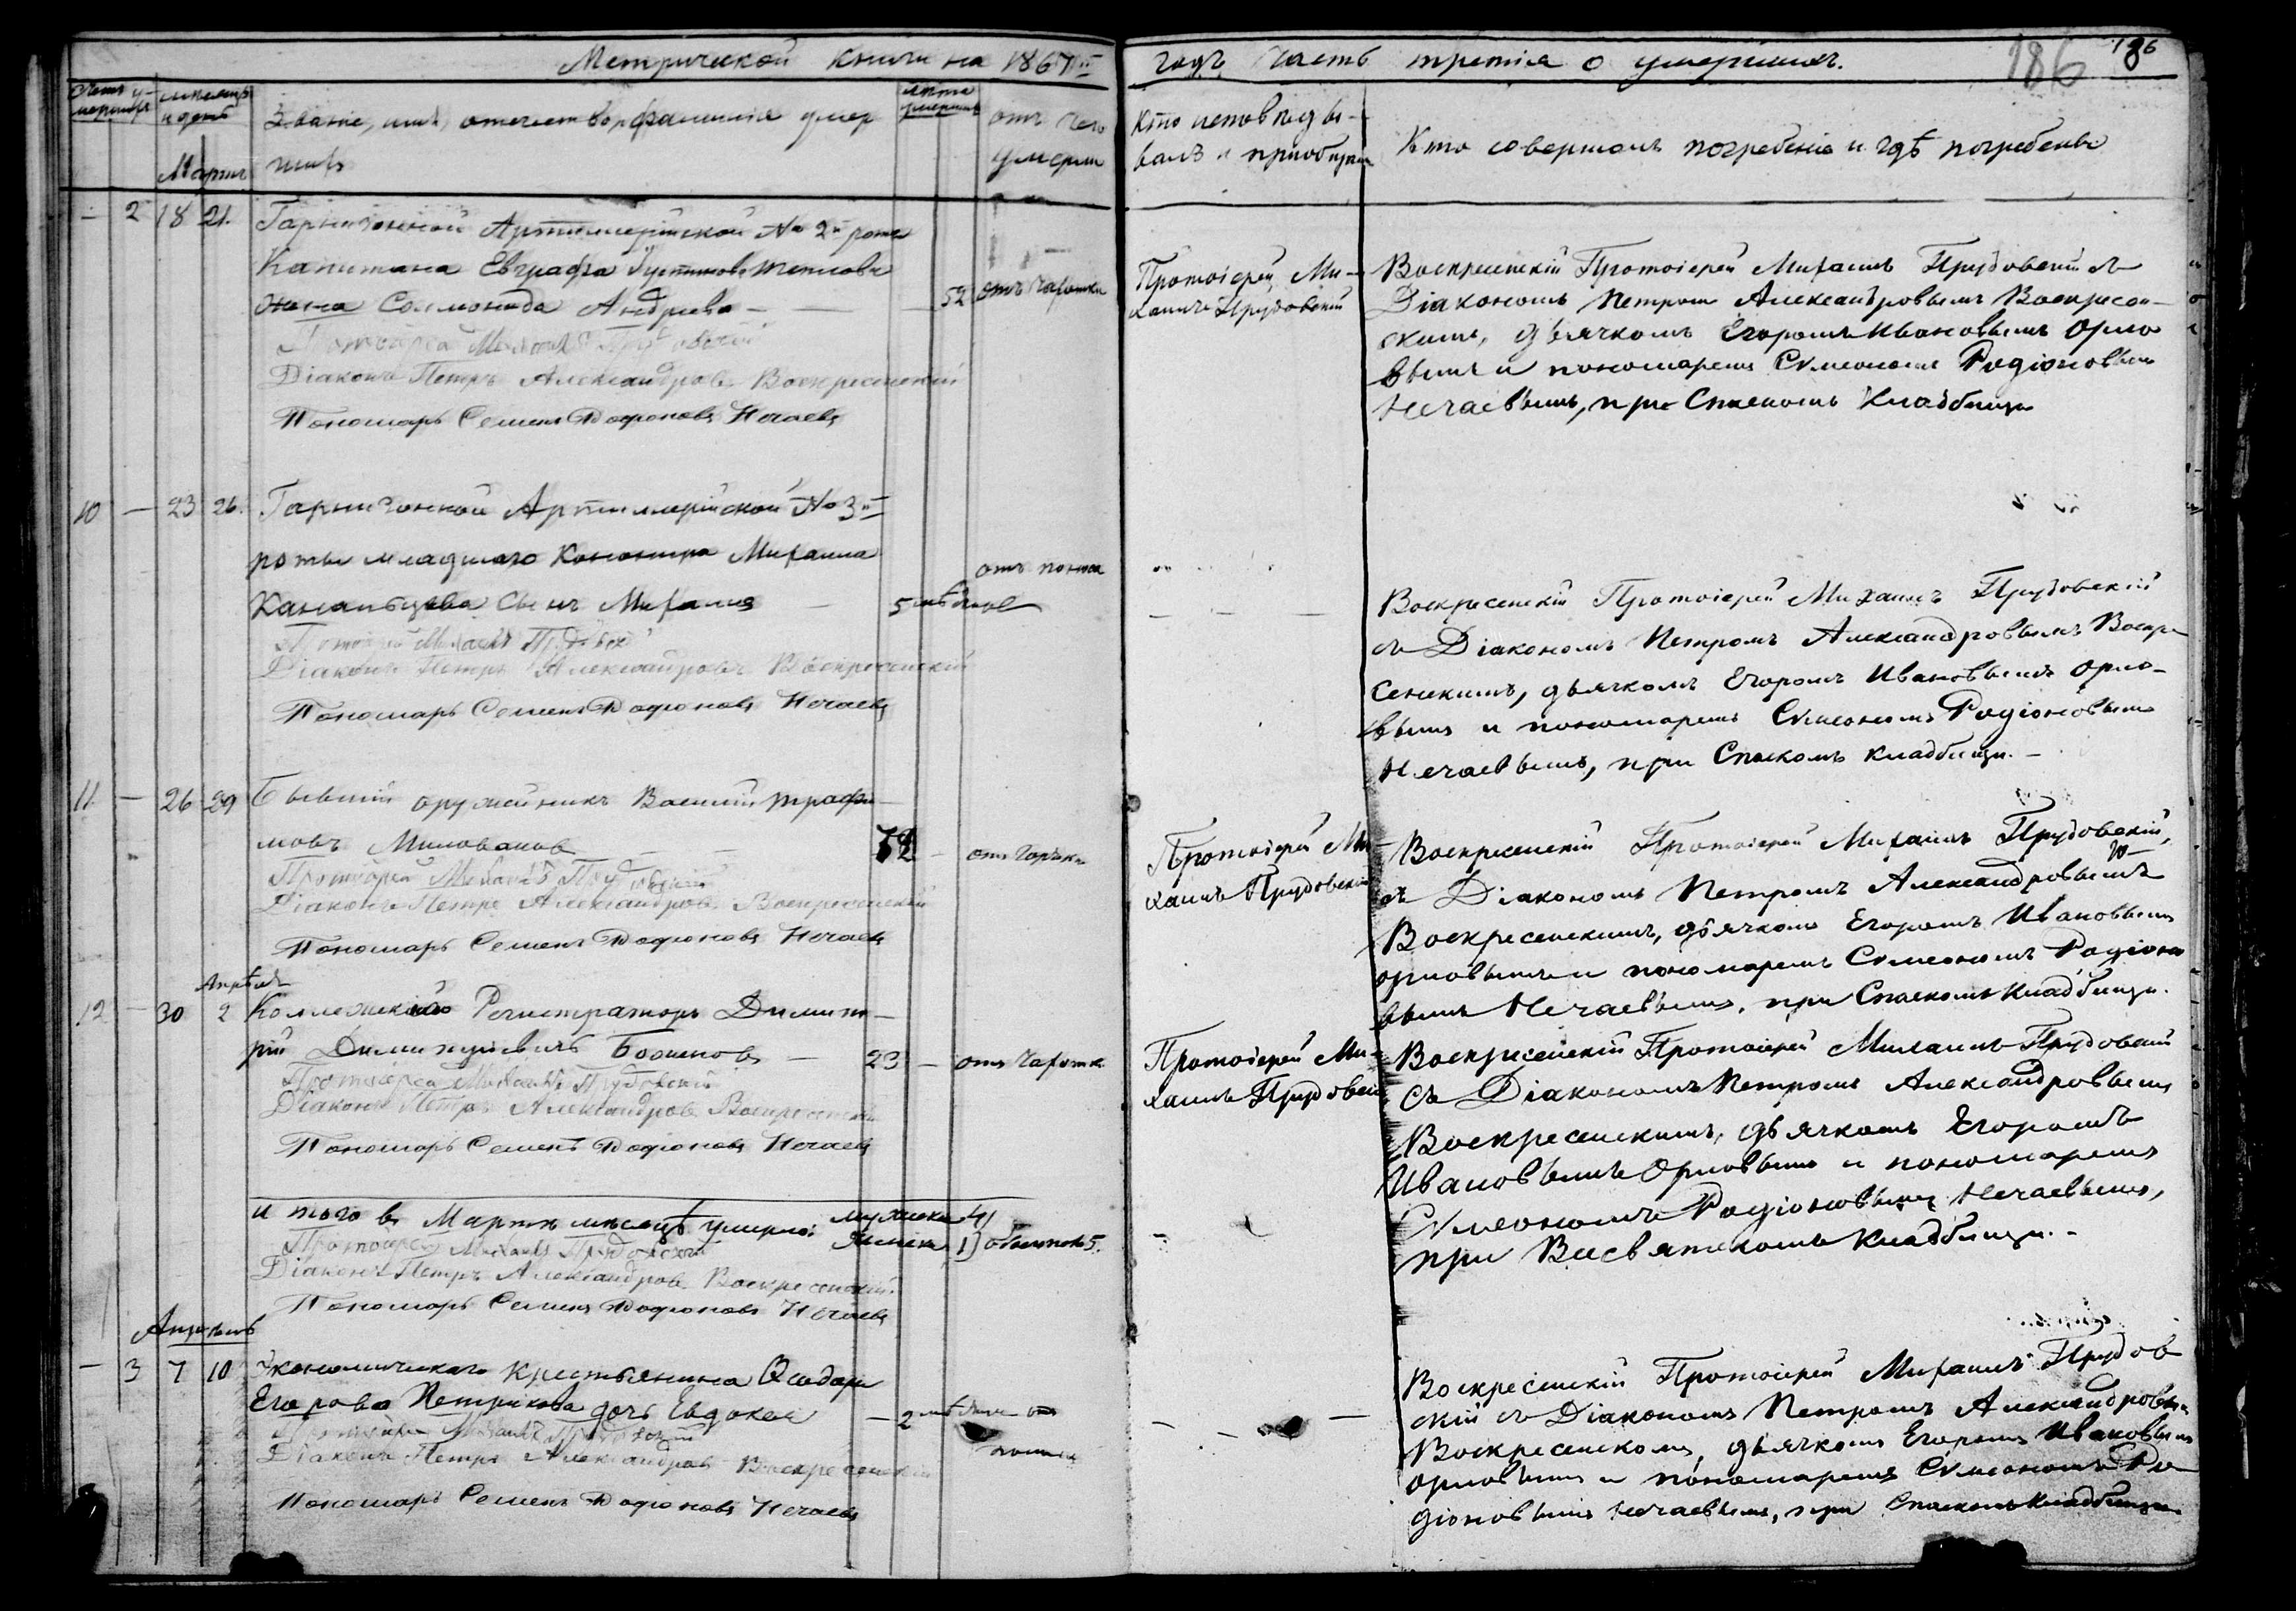 Метрической книги на 1867й
годъ Часть третія о умершихъ.
186
186
Счетъ у-
мершихъ
мѣсяцъ
и день
Мартъ
Званіе, имя, отчество, фамилія умер
шихъ
лѣта
умершихъ
отъ чего
умерли
Кто исповѣды-
валъ и пріобщалъ
Кто совершалъ погребеніе и гдѣ погребены
— 2 18 21. Гарнизонной Артиллерійской № 2й роты
Капитана Евграфа
жена Соломонида Андреева — — 52 отъ чахотки
Протоіерей Михаилъ Прудовскій
Діаконъ Петръ Александровъ Воскресенскій
Пономарь Семенъ Родіоновъ Нечаевъ
Протоіерей Ми-
хаилъ Прудовскій
Воскресенскій Протоіерей Михаилъ Прудовскій съ
Діакономъ Петромъ Александровымъ Воскресен-
скимъ, дьячкомъ Егоромъ Ивановымъ Орло
вымъ и пономаремъ Сѵмеономъ Родіоновымъ
Нечаевымъ, при Спаскомъ Кладбищѣ
10 — 23 26. Гарнизонной Артиллерійской № 3й
роты младшаго Канонира Михаила
сынъ Михаилъ — 5 мѣсяцов отъ поноса
Протоіерей Михаилъ Прудовскій
Діаконъ Петръ Александровъ Воскресенскій
Пономарь Семенъ Родіоновъ Нечаевъ
— — —
Воскресенскій Протоіерей Михаилъ Прудовскій
съ Діакономъ Петромъ Александровымъ Воскре
сенскимъ, дьячкомъ Егоромъ Ивановымъ Орло-
вымъ и пономаремъ Сѵмеономъ Родіоновымъ
Нечаевымъ, при Спаскомъ кладбищѣ. —
11 — 26 29 Бывшій оружейникъ Василій Трофи-
мовъ Миловановъ — — 72 — отъ горячки
Протоіерей Михаилъ Прудовскій
Діаконъ Петръ Александровъ Воскресенскій
Пономарь Семенъ Родіоновъ Нечаевъ
Протоіерей Ми-
хаилъ Прудовскій
Воскресенскій Протоіерей Михаилъ Прудовскій,
съ Діакономъ Петромъ Александровымъ
Воскресенскимъ, дьячкомъ Егоромъ Ивановымъ
Орловымъ и пономаремъ Сѵмеономъ Родіоно
вымъ Нечаевымъ, при Спаскомъ кладбищѣ.
Апрѣля
12 — 30 2 Коллежскій Регистраторъ Димит-
рій Димитріевичъ — 23 — отъ чахотк
Протоіерей Михаилъ Прудовскій
Діаконъ Петръ Александровъ Воскресенскій
Пономарь Семенъ Родіоновъ Нечаевъ
Протоіерей Ми-
хаилъ Прудовскій
Воскресенскій Протоіерей Михаилъ Прудовскій
съ Діакономъ Петромъ Александровымъ
Воскресенскимъ, дьячкомъ Егоромъ
Ивановымъ Орловымъ и пономаремъ
Сѵмеономъ Родіоновымъ Нечаевымъ,
при Всесвятскомъ кладбищѣ. —
И того въ Мартѣ мѣсяцѣ умерло: мужеска 4)
женска 1) обоего пола 5.
Протоіерей Михаилъ Прудовскій
Діаконъ Петръ Александровъ Воскресенскій.
Пономарь Семенъ Родіоновъ Нечаевъ
Апрѣль
— 3 7 10 Экономическаго крестьянина Ѳеодора
Егорова Петрикова дочь Евдокія — 2 мѣсяца отъ
поноса
Протоіерей Михаилъ Прудовскій
Діаконъ Петръ Александровъ Воскресенскій
Пономарь Семенъ Родіоновъ Нечаевъ
— — —
Воскресенскій Протоіерей Михаилъ Прудов
скій съ Діакономъ Петромъ Александровымъ
Воскресенскомъ, дьячкомъ Егоромъ Ивановымъ
Орловымъ и пономаремъ Сѵмеономъ Ро
діоновымъ Нечаевымъ, при Спаскомъ кладбищѣ